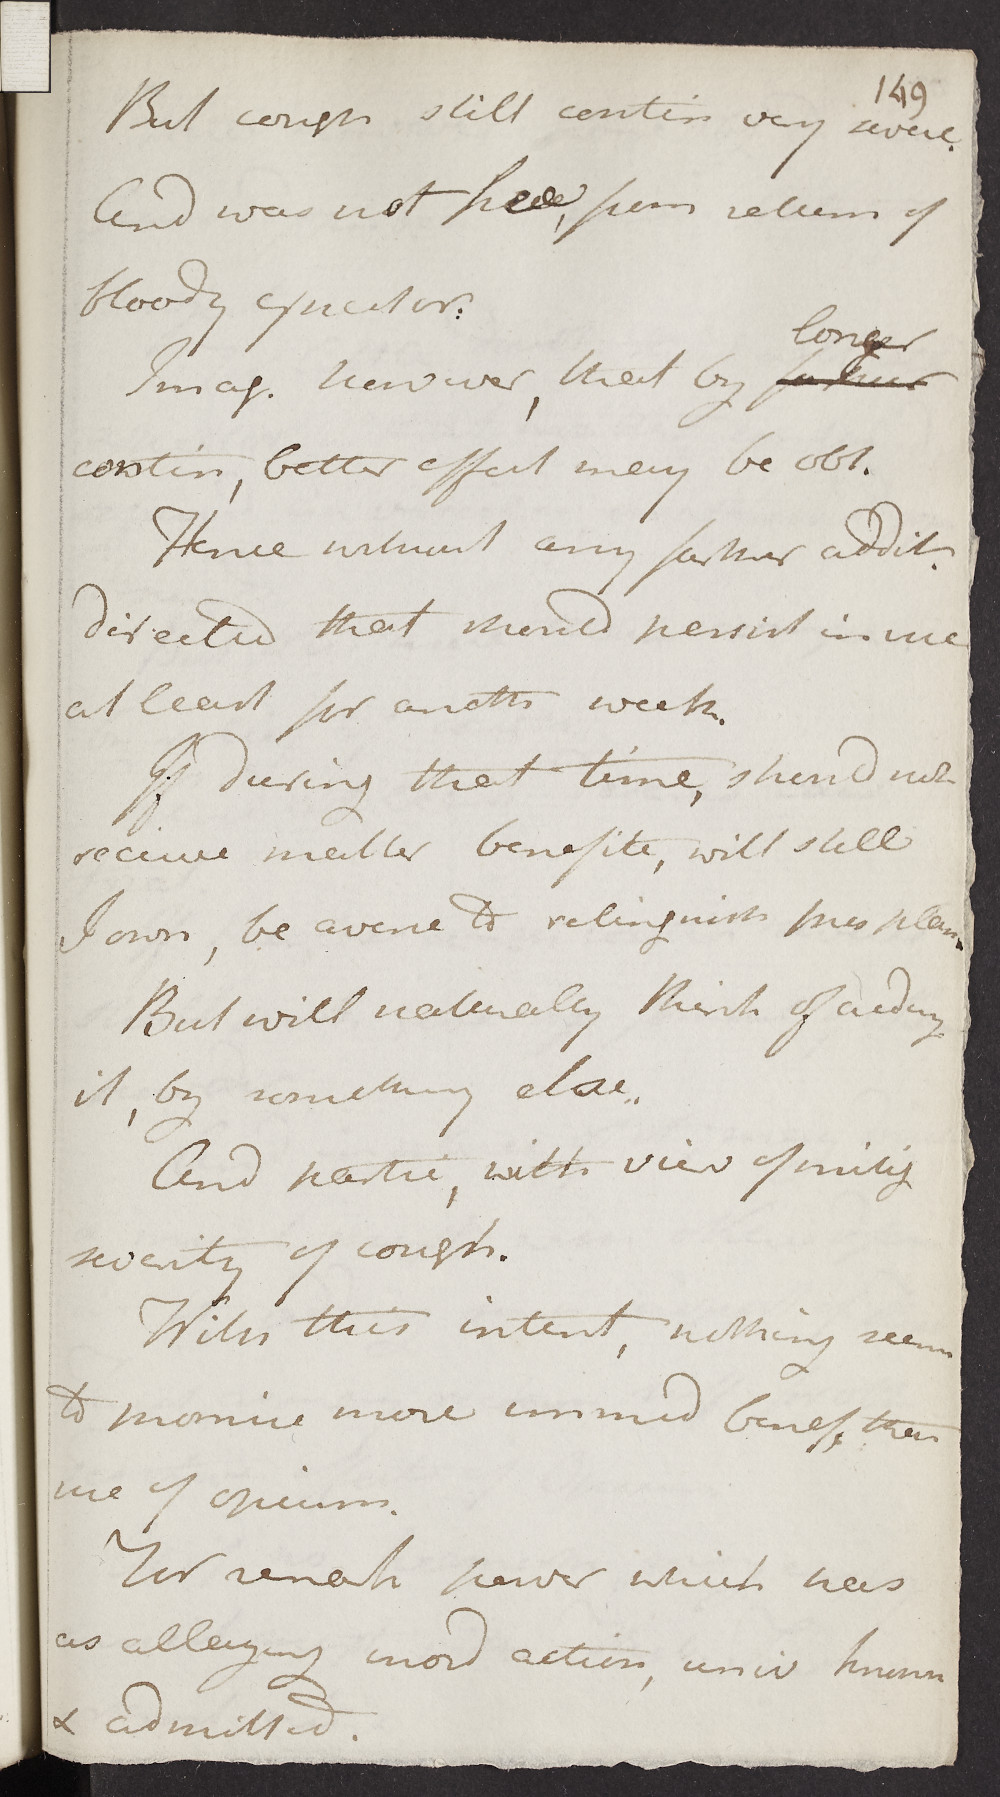 149
But cough still contin very severe.
And was not free, from return of
bloody expector:
Imag. however, that by longer further
contin, better effect may be obt.
Hence without any further addit.
directed that should persist in use
at least for anoth week.
If during that time, should not
receive matter benefite, will still
I own, be averse to relinquish pres plan.
But will naturally think of aiding
it, by something else.
And partic, with view of mitig
severity of cough.
With this intent, nothing seems
to promise more immed benef, than
use of opium.
For remark power which has
as allaying mord action, univ known
& admitted.